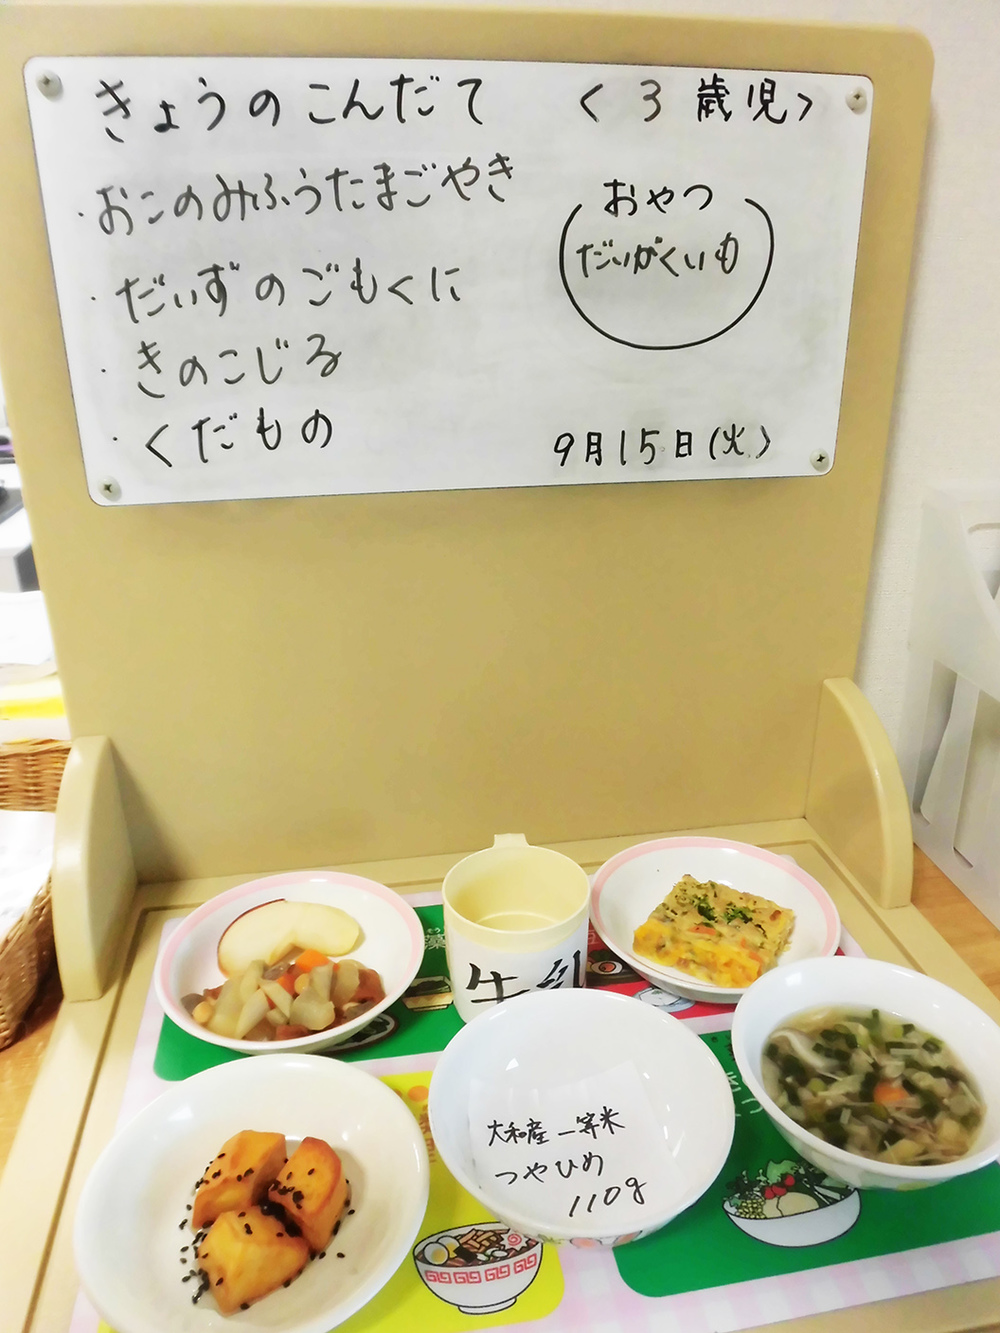 きょうのこんだて
<3歳児>
・おこのみふうたまごやき
・だいずのごもくに
・きのこじる
・くだもの
おやつ
だいがくいも
9月15日(火)
牛乳
大和産一等米
つやひめ
110g